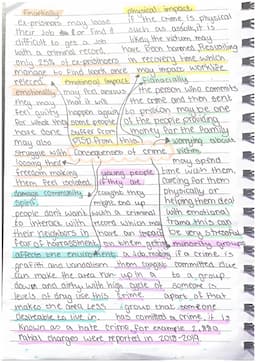 Financially physical impact
ex-prisoners may loose if the crime is physical
their job or find it such as assault, it is
difficult to get a job likely the victim may
with a criminal record. have been harmed resulting
Only 25% of ex-prisoners in recovery time which
manage to find work once may impact worklife
released emotional impact financially
emotionally may feel anxious the person who commits
they may that it will the crime and then sent
feel guilty happen again to prison may be one
for what they some people of the people providing
have done suffer from money for the family
may also PTSD from this worrying about
struggle with consequences of crime victim
loosing their may spend
freedom making young people time with them,
them feel isolated if they are caring for them
damage community caught they physically or
spirit might end up helping them deal
people dont want with a criminal with emotional
to interact with record which may trauma this can
their neighbours in have an impact be very stressful
fear of harrassment on when getting minority groups
affects the environment a job, making if a crime is
grafiti and vandalism them target committed due
can make the area run up in a to a group
down and dirty with high cycle of someone is
levels of drug use this crime apart of that
makes the area less group that someone
desireable to live in. has comitted a crime, it is
Known as a hate crime, for example 2,880
racial charges were reported in 2018-2019.